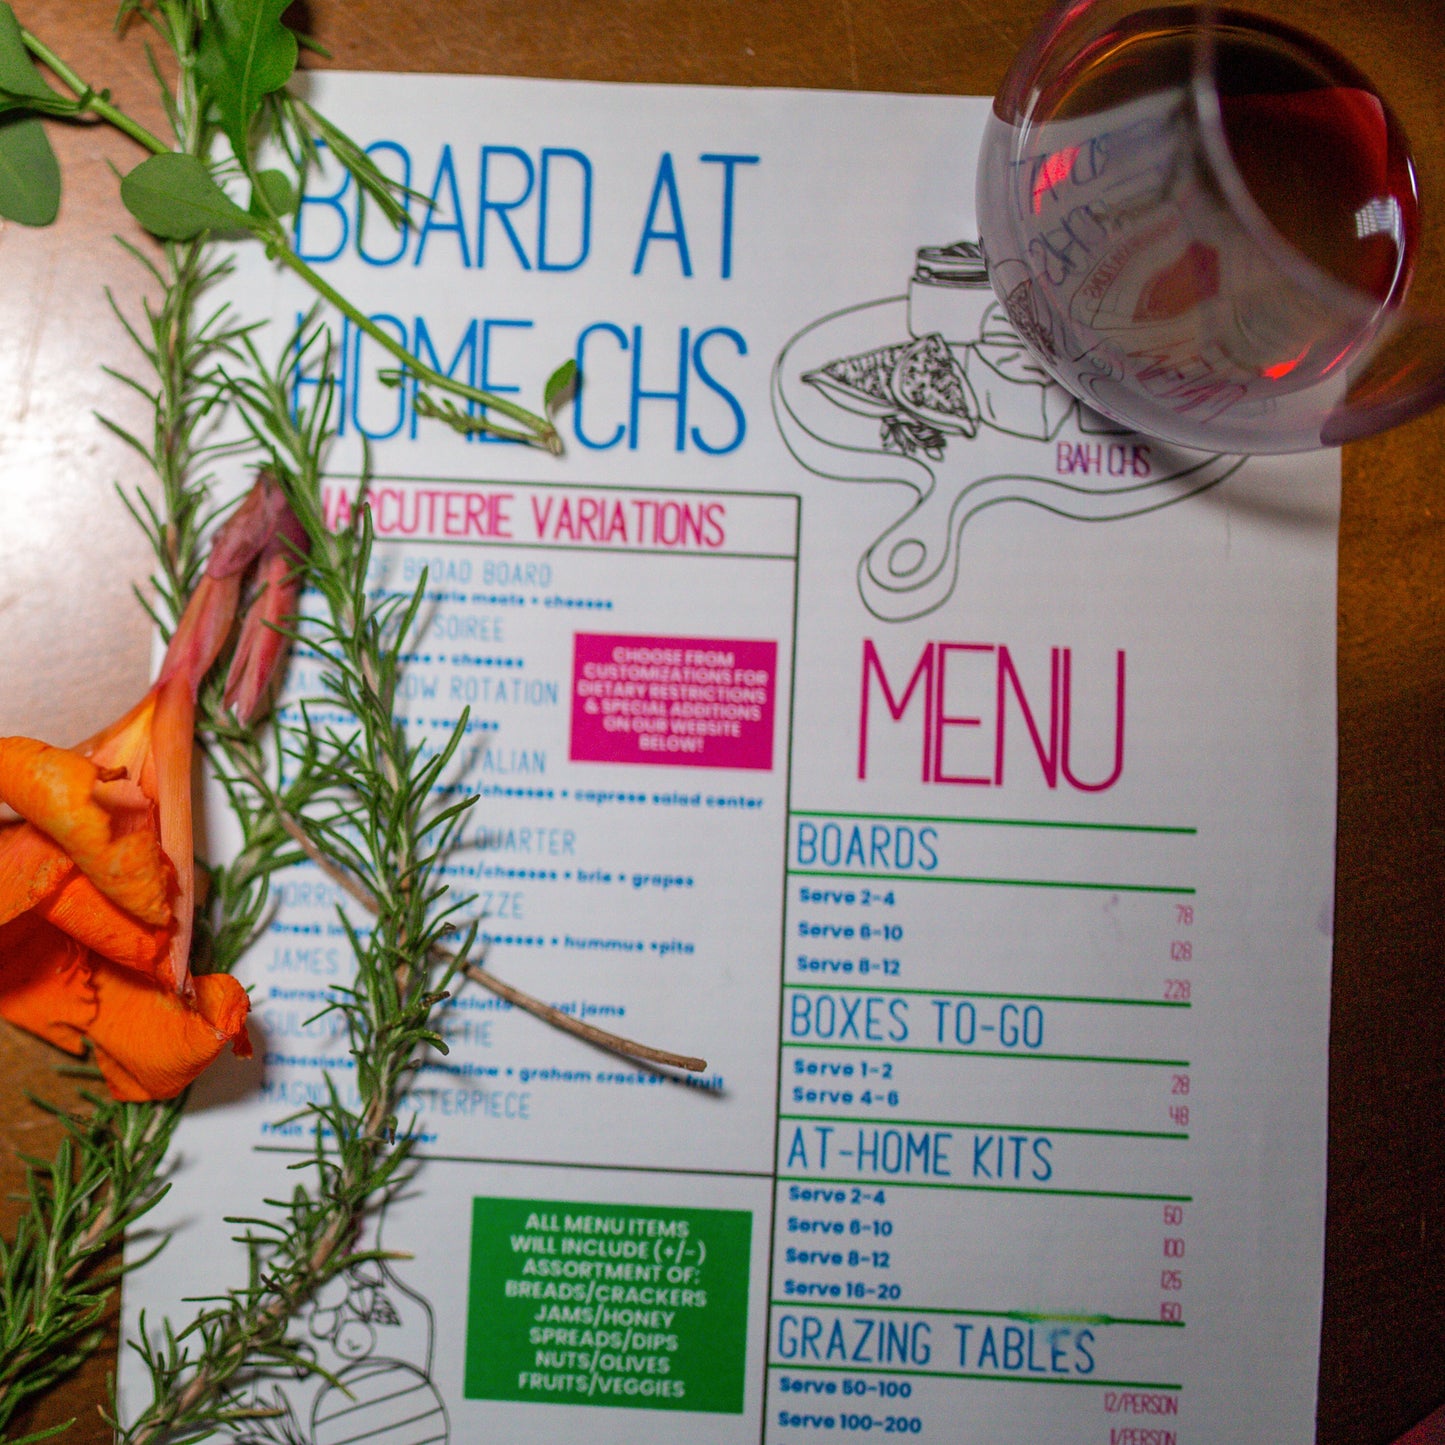 BOARD AT
HOME CHS
BAH CHS
VARIATIONS
BROAD BOARD
meats • cheeses
SOIREE
• cheeses
ROTATION
• veggies
ITALIAN
meats/cheeses • caprese salad center
QUARTER
meats/cheeses • brie • grapes
MORRIS MEZZE
Greek cheeses • hummus •pita
JAMES
Burrata jams
Chocolate • graham cracker • fruit
MAGNOLIA MASTERPIECE
Fruit
CHOOSE FROM
CUSTOMIZATIONS FOR
DIETARY RESTRICTIONS
& SPECIAL ADDITIONS
ON OUR WEBSITE
BELOW!
ALL MENU ITEMS
WILL INCLUDE (+/-)
ASSORTMENT OF:
BREADS/CRACKERS
JAMS/HONEY
SPREADS/DIPS
NUTS/OLIVES
FRUITS/VEGGIES
MENU
BOARDS
Serve 2-4 78
Serve 6-10 128
Serve 8-12 228
BOXES TO-GO
Serve 1-2 28
Serve 4-6 48
AT-HOME KITS
Serve 2-4 50
Serve 6-10 100
Serve 8-12 125
Serve 16-20 150
GRAZING TABLES
Serve 50-100 12/PERSON
Serve 100-200 11/PERSON